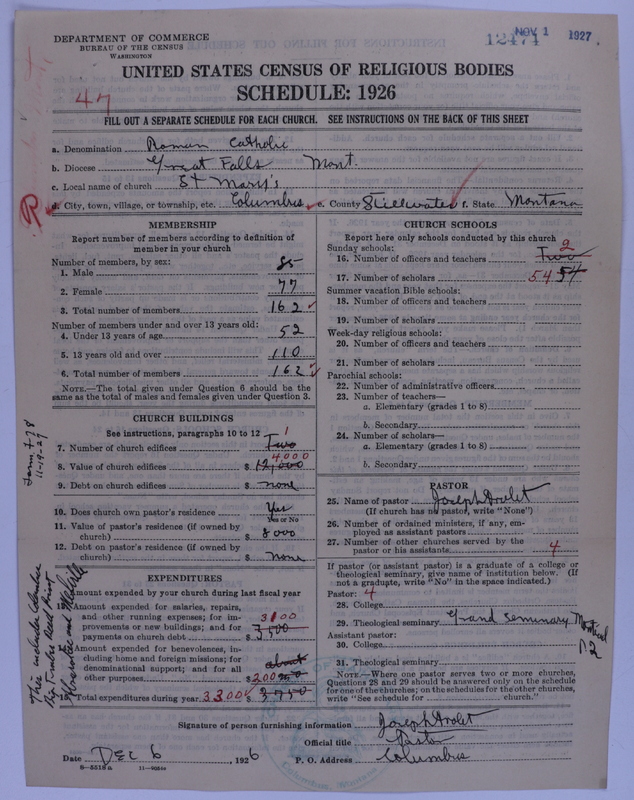 DEPARTMENT OF COMMERCE
BUREAU OF THE CENSUS
WASHINGTON
12474
NOV 1 1927
UNITED STATES CENSUS OF RELIGIOUS BODIES
SCHEDULE: 1926
47
FILL OUT A SEPARATE SCHEDULE FOR EACH CHURCH. SEE INSTRUCTIONS ON THE BACK OF THIS SHEET
a. Denomination Roman Catholic
b. Diocese Great Falls Mont.
c. Local name of church St Mary's
R
d. City, town, village, or township, etc. Columbus e. County Stillwater f. State Montana
MEMBERSHIP
Report number of members according to definition of
member in your church
Number of members, by sex:
1. Male 85
2. Female 77
3. Total number of members 162
Number of members under and over 13 years old:
4. Under 13 years of age 52
5. 13 years old and over 110
6. Total number of members 162
NOTE.—The total given under Question 6 should be the
same as the total of males and females given under Question 3.
CHURCH BUILDINGS
See instructions, paragraphs 10 to 12
7. Number of church edifices Two 1
8. Value of church edifices $ 12,000 4,000
9. Debt on church edifices $ none
10. Does church own pastor's residence Yes
Yes or No
11. Value of pastor's residence (if owned by
church) $ 8000
12. Debt on pastor's residence (if owned by
church) $ None
EXPENDITURES
Amount expended by church during last fiscal year
Amount expended for salaries, repairs,
and other running expenses; for im-
provements or new buildings; and for
payments on church debt $ 3,500 3100
Amount expended for benevolences, in-
cluding home and foreign missions; for
denominational support; and for all
other purposes $ about 250 200
Total expenditures during year 3300 $ 3,750
11-19-27
This includes Columbus
Absarokee and
CHURCH SCHOOLS
Report here only schools conducted by this church
Sunday schools:
16. Number of officers and teachers Two 2
17. Number of scholars 54 54
Summer vacation Bible schools:
18. Number of officers and teachers
19. Number of scholars
Week-day religious schools:
20. Number of officers and teachers
21. Number of scholars
Parochial schools:
22. Number of administrative officers
23. Number of teachers—
a. Elementary (grades 1 to 8)
b. Secondary
24. Number of scholars—
a. Elementary (grades 1 to 8)
b. Secondary
PASTOR
25. Name of pastor Joseph Drolet
(If church has no pastor, write "None")
26. Number of ordained ministers, if any, em-
ployed as assistant pastors
27. Number of other churches served by the
pastor or his assistants 4
If pastor (or assistant pastor) is a graduate of a college or
theological seminary, give name of institution below. (If
not a graduate, write "No" in the space indicated.)
Pastor: 4
28. College
29. Theological seminary Grand Seminary Montreal
Assistant pastor:
30. College
31. Theological seminary
NOTE.—Where one pastor serves two or more churches,
Questions 28 and 29 should be answered only on the schedule
for one of the churches; on the schedules for the other churches,
write "See schedule for church."
Signature of person furnishing information Joseph Drolet
Official title Pastor
Date Dec 6, 1926 P. O. Address Columbus
8—5518a 11—9554a
Columbus, Montana